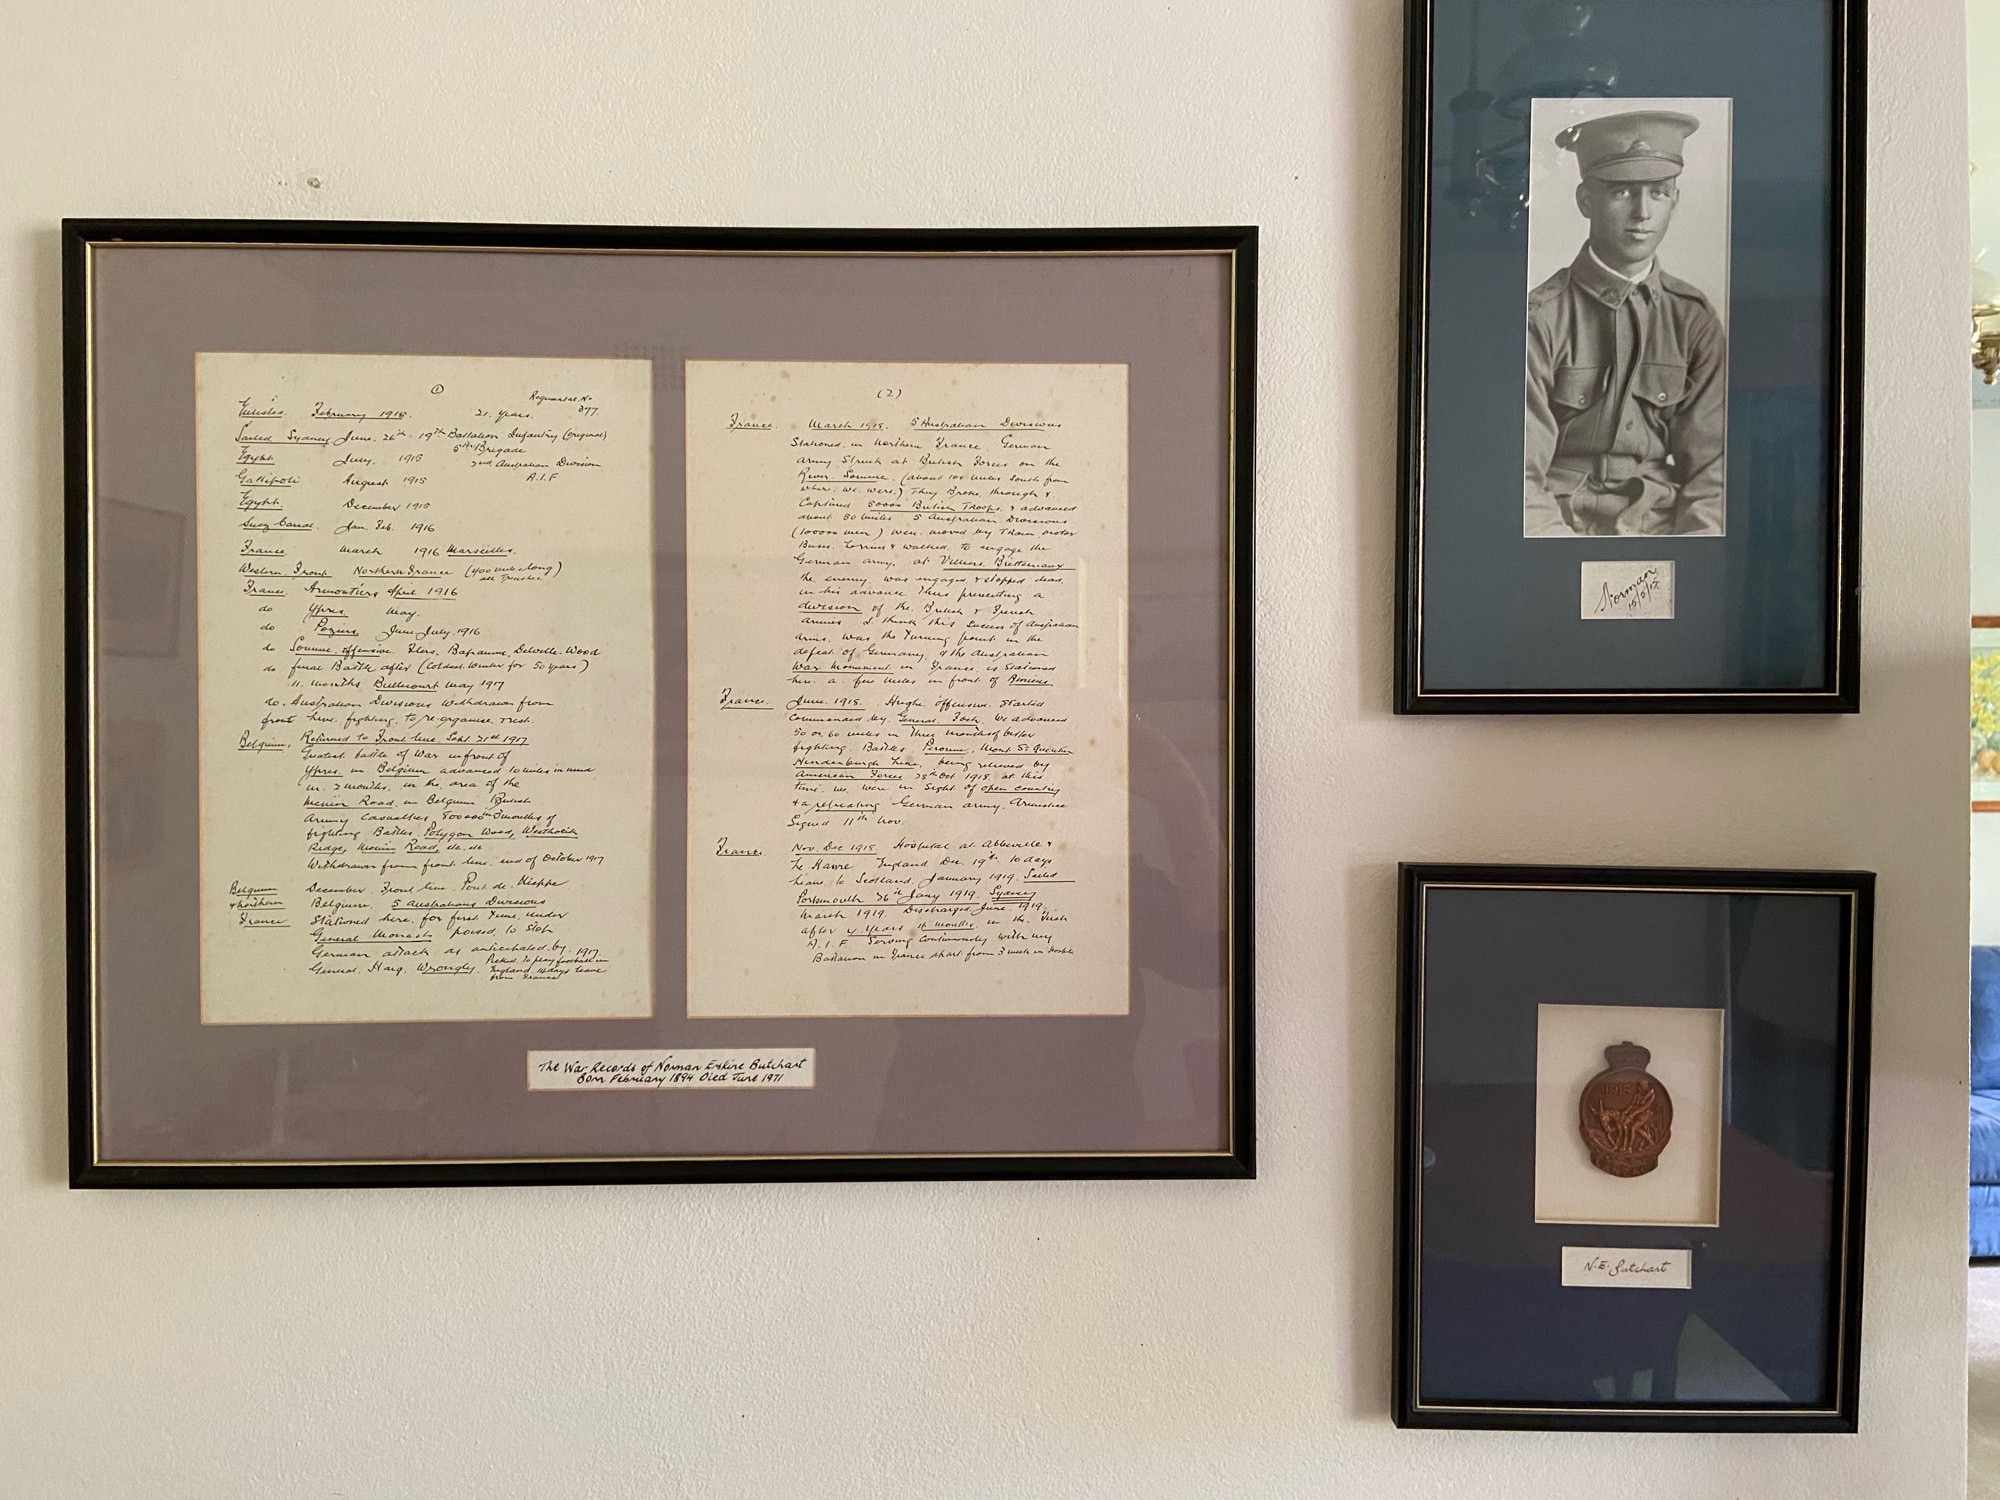 ①
Regimental No
Enlists. February 1915. 21. years. 377.
Sailed Sydney June. 26th. 19th Battalion Infantry (original)
5th Brigade
Egypt July. 1915 2nd Australian Division
Gallipoli August 1915 A.I.F
Egypt. December 1915
Suez Canal. Jan. Feb. 1916
France. March 1916 Marseilles.
Western. Front Northern France (400 miles long)
all Trenches.
France. Armontiers April 1916
do Ypres. May.
do Pozius June July. 1916
do Somme. offensive. Flers. Bapaume, Delville. Wood
do final Battle after (Coldest. Winter for 50 years)
11. months Bullecourt May 1917
do. Australian Divisions withdrawn from
front line. fighting. to re-organise rest.
Belgium. Returned to Front line. Sept. 21st 1917
Greatest. battle of War in front of
Ypres. in Belgium advanced 10 miles in mud
in. 2 months. in the. area of the
Menin Road. in Belgium British
Army Casualties 800000 in 3 months of
fighting Battles. Polygon Wood, Westhoek
Ridge, Menin Road, etc. etc
Withdrawn from front line. end of October 1917
Belgium December. Front line. Pont. de. Nieppe
& Northern Belgium. 5 Australians Divisions
France Stationed here. for first time. under
General Monash poised. to stop
German attack as anticipated. by. 1917.
General. Haig. Wrongly. Picked. to play football in
England. 14 days leave
from France
(2)
France. March 1918. 5 Australian Divisions
Stationed. in Northern France German
army Struck at British Forces on the
River. Somme. (about 100 miles South from
where. we. were.) They Broke through &
Captured 50000 British Troops. & advanced
about 50 miles 5 Australian Divisions
(100000 men) were moved by Train motor
Buses. Lorries & walked. to engage the
German army. at Villiers. Bretteneaux
the enemy. was engaged & stopped dead.
in his advance thus preventing a
division of the. British & French
armies. I think this success of Australian
arms. was the turning point in the
defeat of Germany, & the Australian
War Monument in France is Stationed
here. a few miles in front of Amiens
France. June. 1918. Hughe offensive. Started
Commanded by General. Foch. We advanced
50 or 60 miles in three months of bitter
fighting. Battles Peronne, Mont St Quentin
Hindenburgh Line, being relieved by
American Forces 28th Oct 1918. at this
time. we. were in sight of open country
& a retreating German army. Armistice
Signed 11th Nov.
France Nov. Dec 1918. Hospital at Abbeville &
Le. Havre. England Dec. 19th. 10 days
leave. to Scotland. January 1919. Sailed
Portsmouth 26th Jany 1919. Sydney
March 1919. Discharged. June. 1919.
after 4 years in the
A.I.F. Serving continuously with my
Battalion in France apart from 3 week in
The War Records of Norman Erskine Butchart
Born February 1894 Died June 1971
Norman
N.E. Butchart
1915